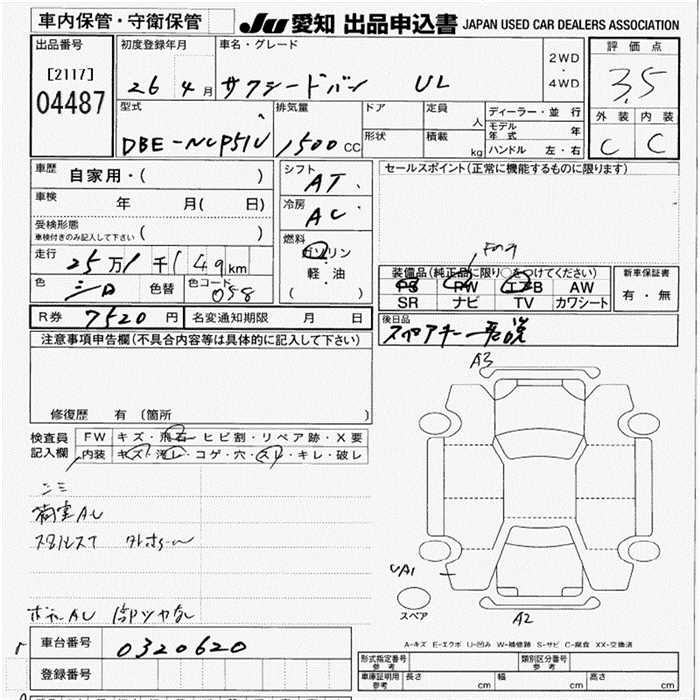 車内保管・守衛保管 JU 愛知 出品申込書 JAPAN USED CAR DEALERS ASSOCIATION
出品番号 初度登録年月 車名・グレード 2WD・4WD 評価点
[2117] 26年4月 サクシードバン UL 3.5
04487
型式 排気量 ドア 定員 人 ディーラー・並行 外装 内装
DBE-NCP51V 1500CC 形状 積載 kg モデル年式 年 C C
ハンドル 左・右
車歴 自家用・( ) シフト AT セールスポイント(正常に機能するものに限ります)
車検 年 月( 日) 冷房 AC
受検形態
車検付きのみ記入して下さい ( ) 燃料 ガソリン・軽油 ( )
走行 25万1千149km 装備品(純正品に限り○をつけてください) 新車保証書
色 シロ 色替 色コード 058 PS PW エアB AW 有・無
SR ナビ TV カワシート
R券 7520円 名変通知期限 月 日 後日品
注意事項申告欄(不具合内容等は具体的に記入して下さい) スペアキー
A3
修復歴 有 (箇所 )
検査員記入欄 FW キズ・飛石・ヒビ割・リペア跡・X要
内装 キズ・汚レ・コゲ・穴・スレ・キレ・破レ
荷室AU
UA1
スペア A2
車台番号 0320620
A-キズ E-エクボ U-凹み W-補修跡 S-サビ C-腐食 XX-交換済
登録番号 形式指定番号 参考 類別区分番号 参考
車庫証明用 参考 長さ cm 幅 cm 高さ cm